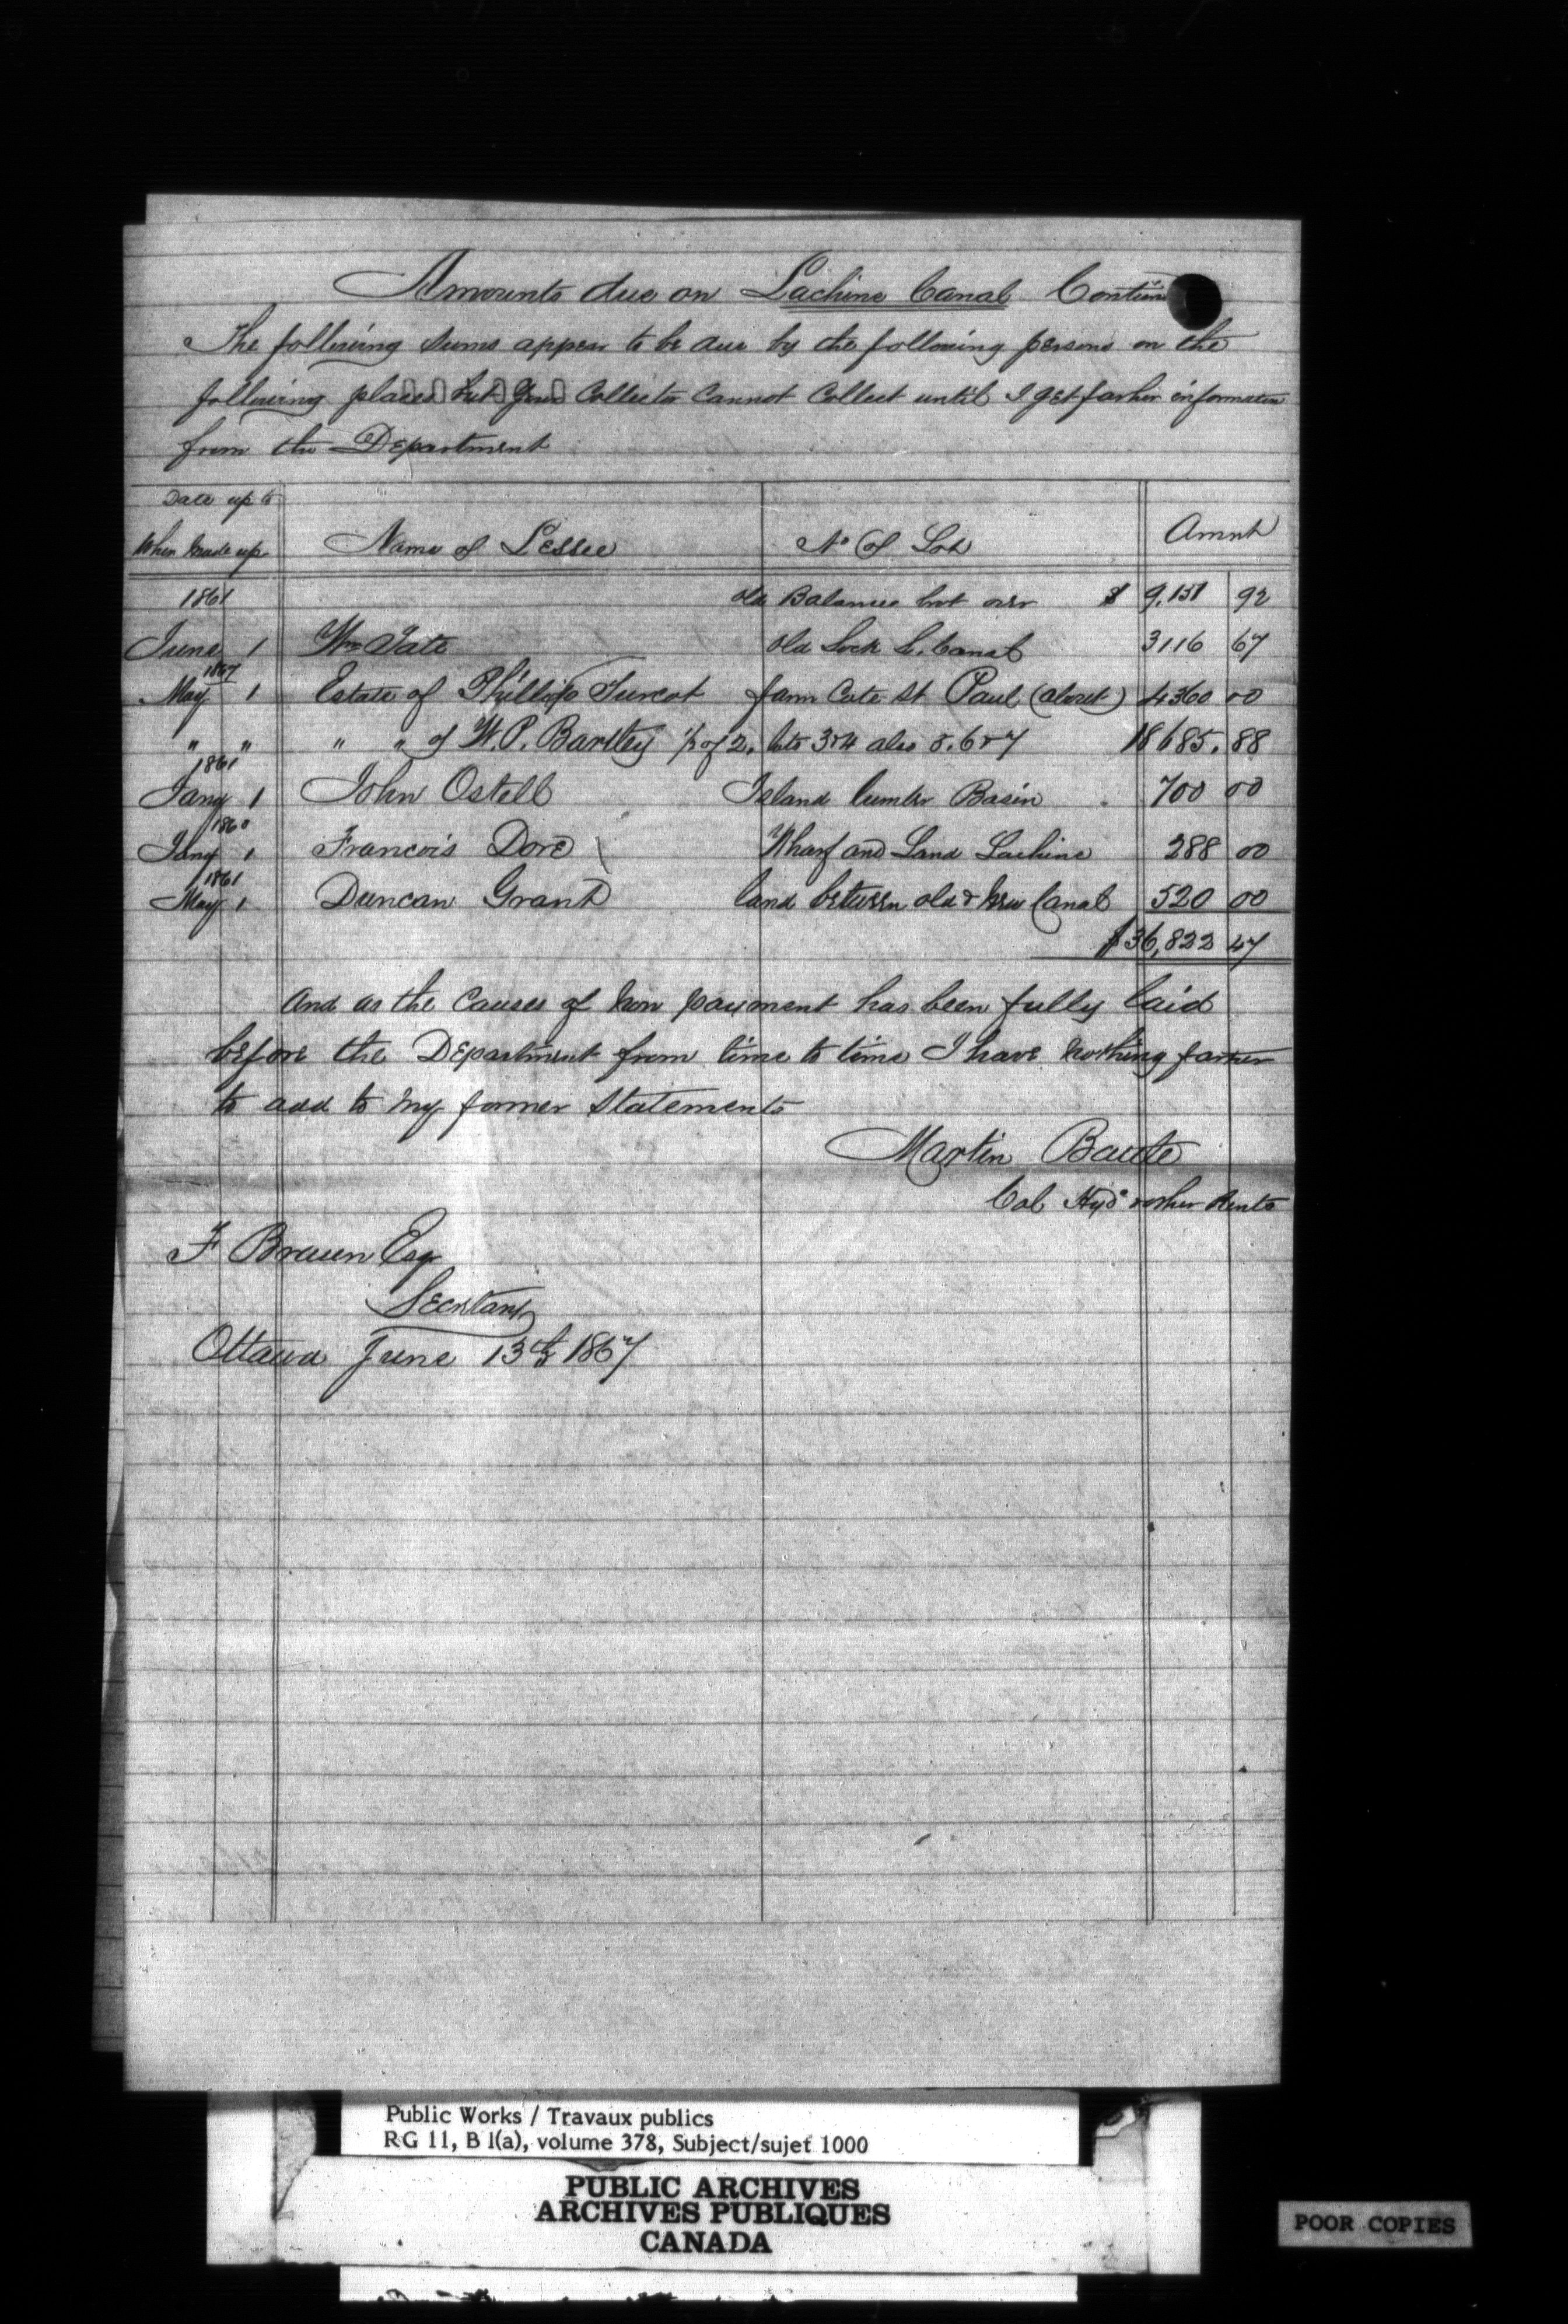 Amounts due on Lachine Canal Contin
The following sums appear to be due by the following persons on the
following places but your Collector Cannot Collect until I get farher information
from the Department
Date up to
When made up
Name of Lessee
No of Lot
Amnt
1861 old Balance bot over $ 9,151 92
June 1 Wm Tate old Lock L. Canal 3116 67
1867
May 1 Estate of Phillip Turcot farm Cote St Paul (closed) 4360 00
" " " " of W. P. Bartley ½ of 2, lots 3 & 4 also 5. 6 & 7 18685. 88
1861
Jany 1 John Ostell Island lumber Basin 700 00
1860
Jany 1 Francois Dore Wharf and Land Lachine 288 00
1861
May 1 Duncan Grant land between old & new Canal 520 00
$ 36,822 47
And as the Causes of non payment has been fully laid
before the Department from time to time I have nothing farther
to add to my former Statements
Martin
Col Hyd & other Rents
F Braun Esq
Secretary
Ottawa June 13th 1867
Public Works / Travaux publics
RG 11, B 1(a), volume 378, Subject/sujet 1000
PUBLIC ARCHIVES
ARCHIVES PUBLIQUES
CANADA
POOR COPIES